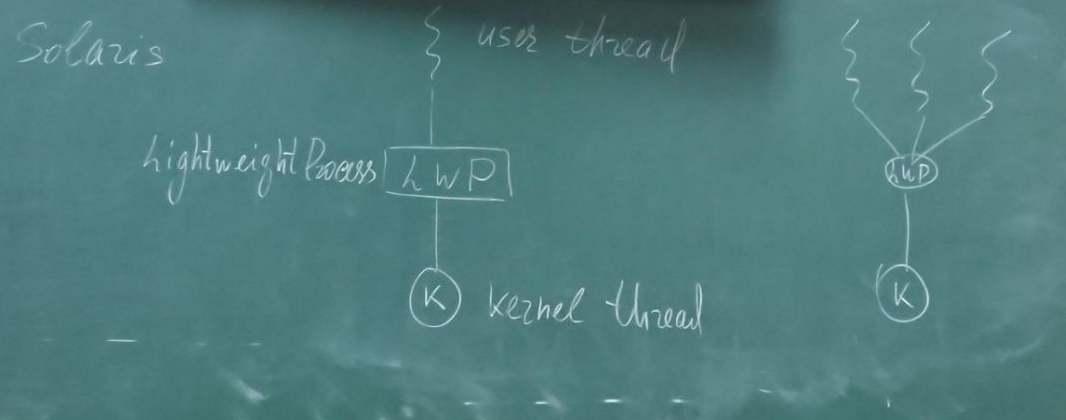 Solaris
user thread
Lightweight Process
LWP
K
kernel thread
LWP
K